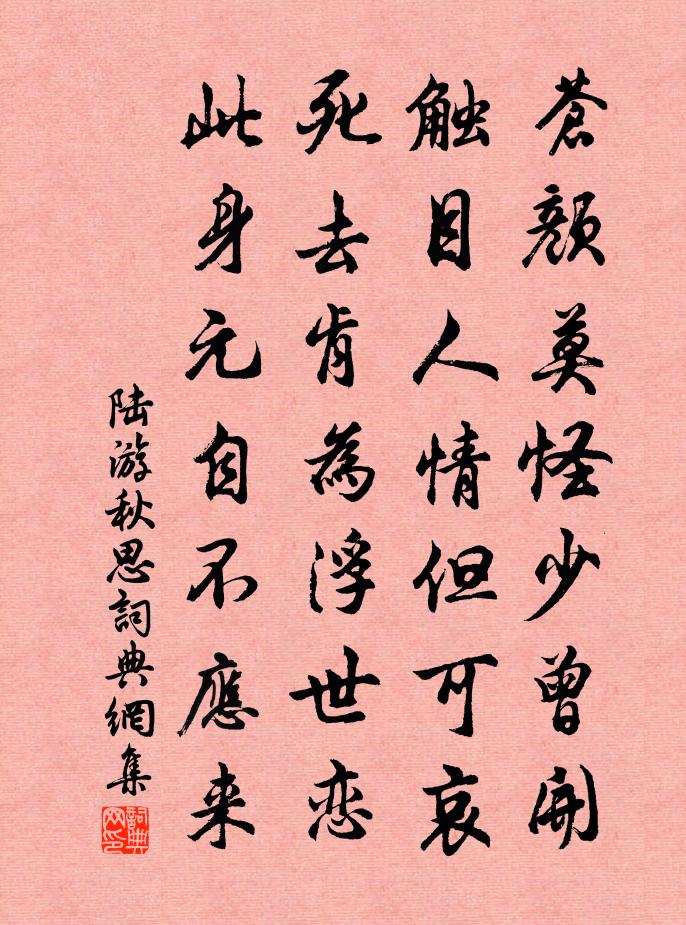 蒼顏莫怪少曾開
触目人情但可哀
死去肯為浮世恋
此身元自不應来
陆游秋思詞典網集
詞典网印